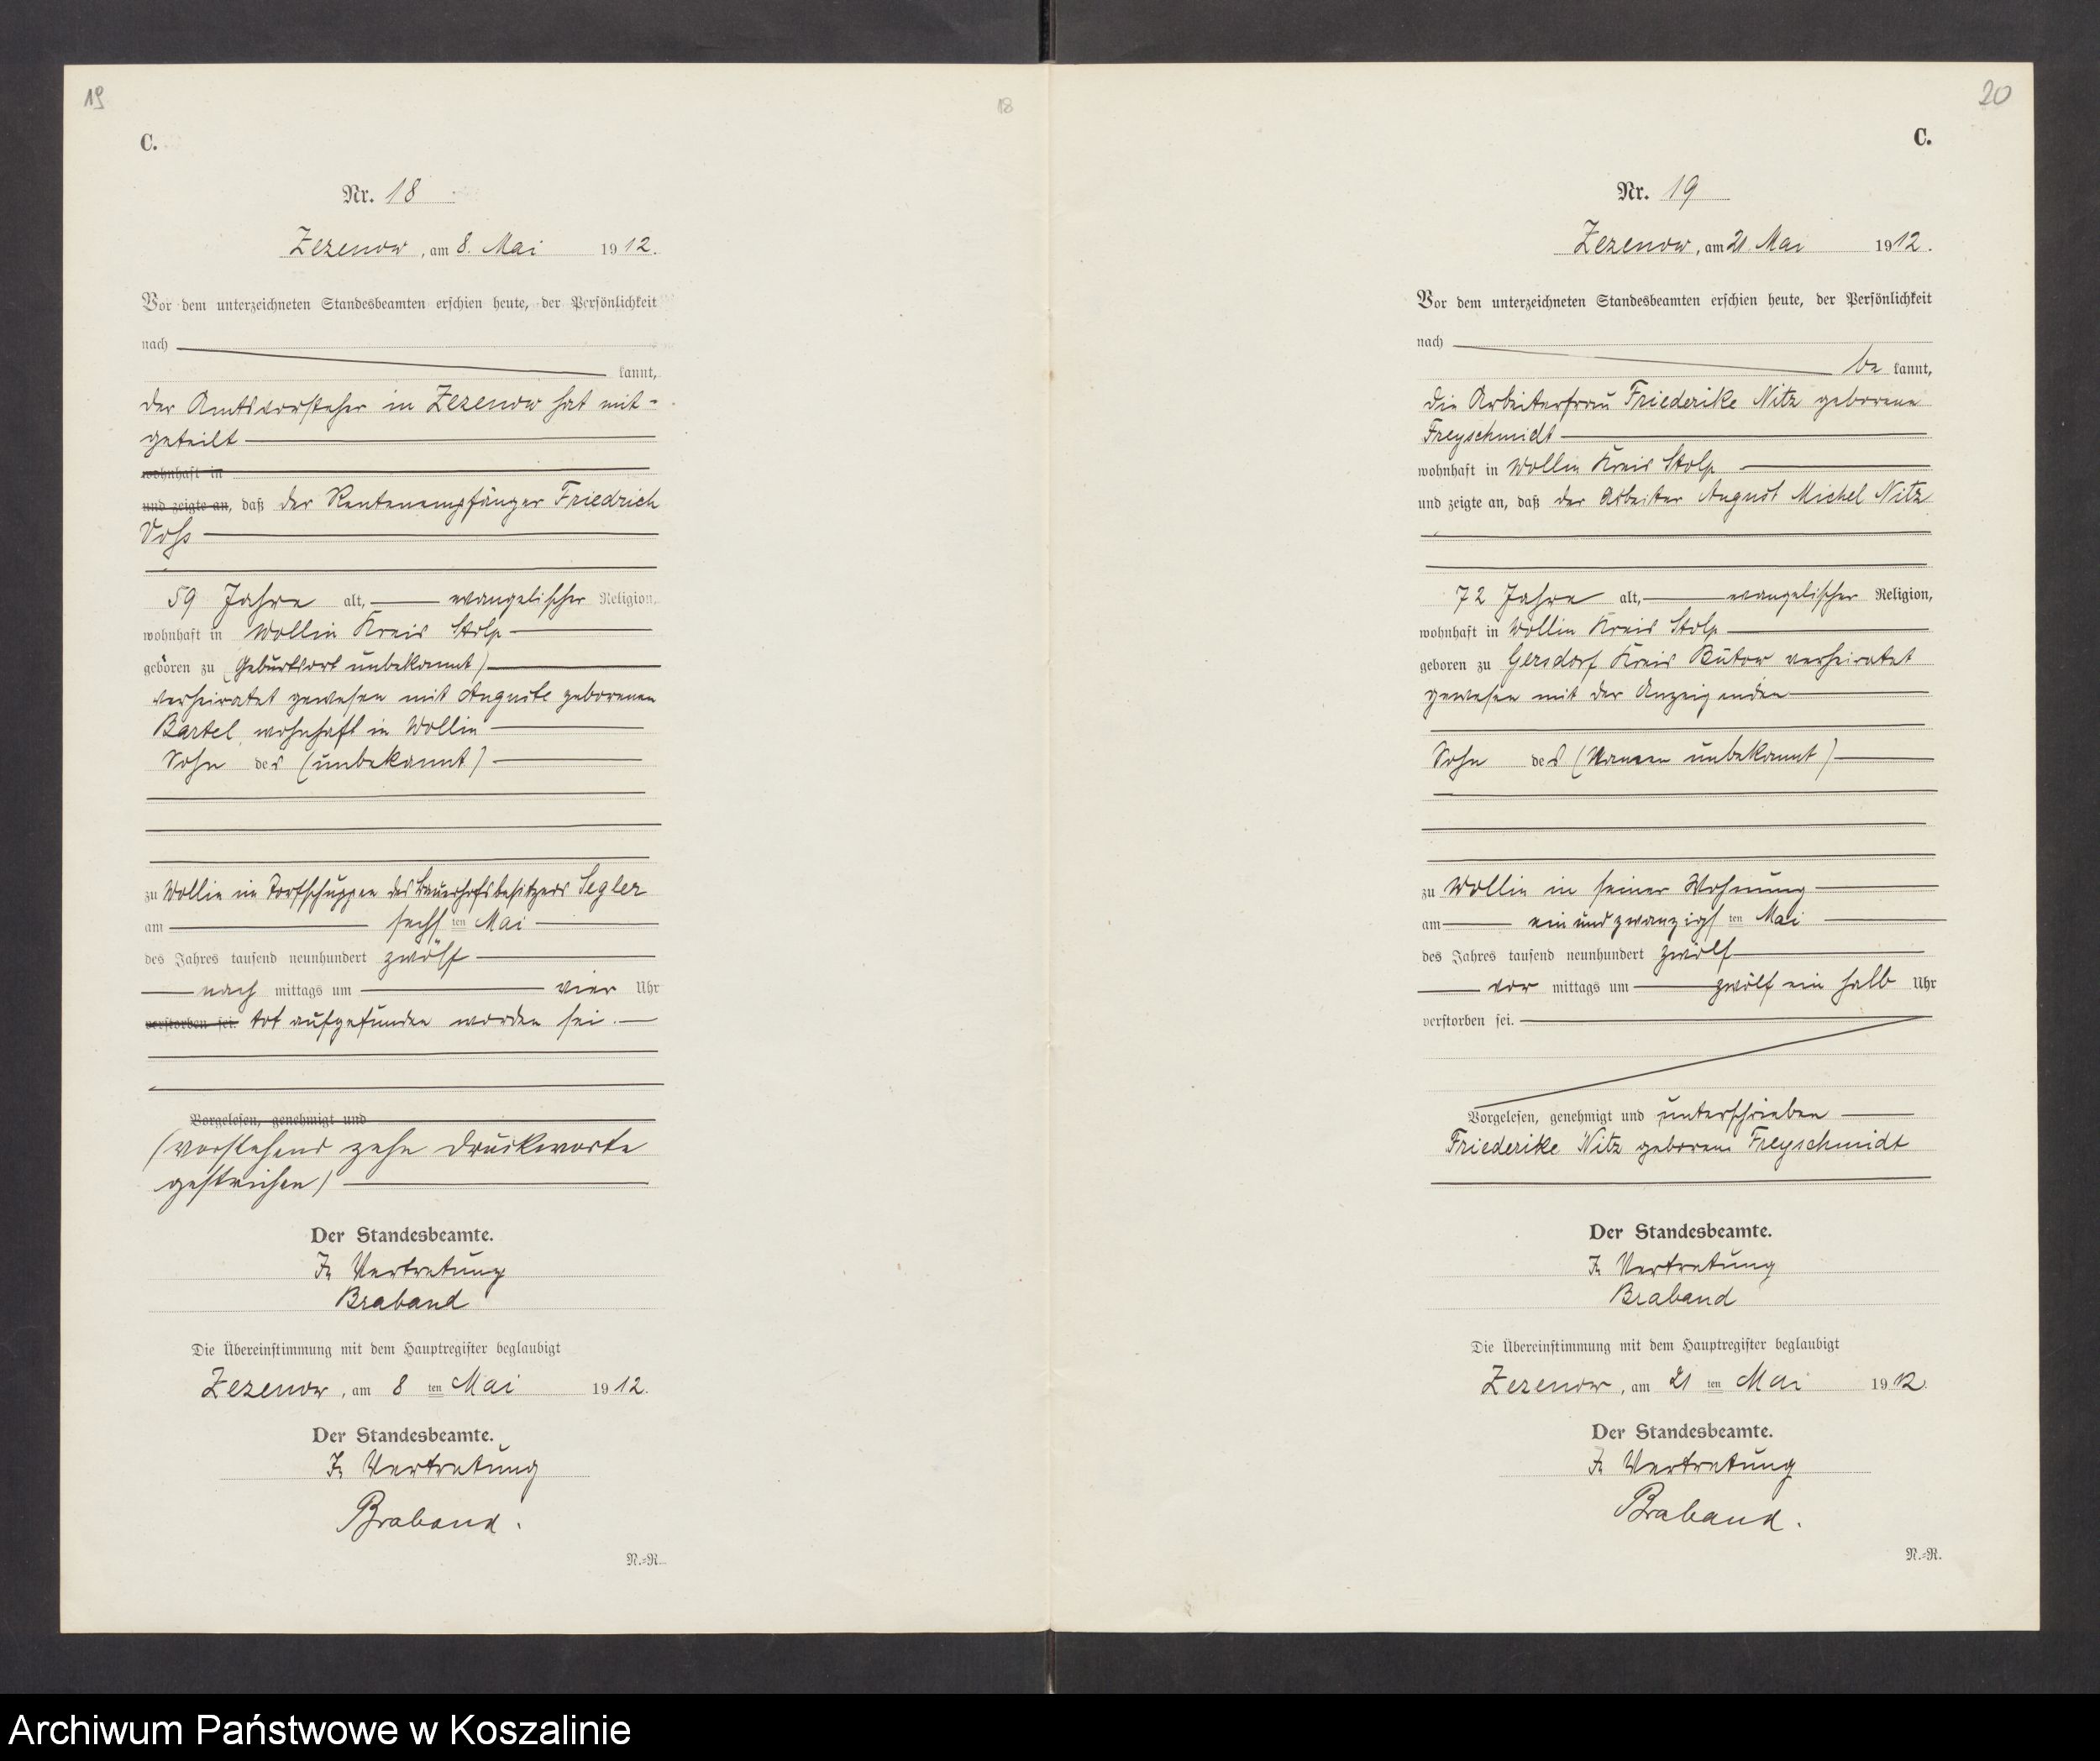 19
18
C.
Nr. 18
Zezenow, am 8. Mai 1912.
Vor dem unterzeichneten Standesbeamten erschien heute, der Persönlichkeit
nach
kannt,
der Amtsvorsteher in Zezenow hat mit-
geteilt
wohnhaft in
und zeigte an, daß der Rentenempfänger Friedrich
Voss
59 Jahre alt, evangelischer Religion,
wohnhaft in Wollin Kreis Stolp
geboren zu (Geburtsort unbekannt)
verheiratet gewesen mit Auguste geborenen
Bartel, wohnhaft in Wollin
Sohn des (unbekannt)
zu Wollin im Torfschuppen des Bauerhofsbesitzers Segler
am sechsten Mai
des Jahres tausend neunhundert zwölf
nachmittags um vier Uhr
verstorben sei. tot aufgefunden worden sei.
Vorgelesen, genehmigt und
(vorstehend zehn Druckworte
gestrichen)
Der Standesbeamte.
In Vertretung
Braband
Die Übereinstimmung mit dem Hauptregister beglaubigt
Zezenow, am 8ten Mai 1912.
Der Standesbeamte.
In Vertretung
Braband.
N.-R.
20
C.
Nr. 19
Zezenow, am 21 Mai 1912.
Vor dem unterzeichneten Standesbeamten erschien heute, der Persönlichkeit
nach
bekannt,
die Arbeiterfrau Friederike Nitz geborene
Freyschmidt
wohnhaft in Wollin Kreis Stolp
und zeigte an, daß der Arbeiter August Michel Nitz
72 Jahre alt, evangelischer Religion,
wohnhaft in Wollin Kreis Stolp
geboren zu Gersdorf Kreis Bütow verheiratet
gewesen mit der Anzeigenden
Sohn des (Namen unbekannt)
zu Wollin in seiner Wohnung
am ein und zwanzigsten Mai
des Jahres tausend neunhundert zwölf
vormittags um zwölf ein halb Uhr
verstorben sei.
Vorgelesen, genehmigt und unterschrieben
Friederike Nitz geborene Freyschmidt
Der Standesbeamte.
In Vertretung
Braband
Die Übereinstimmung mit dem Hauptregister beglaubigt
Zezenow, am 21ten Mai 1912.
Der Standesbeamte.
In Vertretung
Braband.
N.-R.
Archiwum Państwowe w Koszalinie